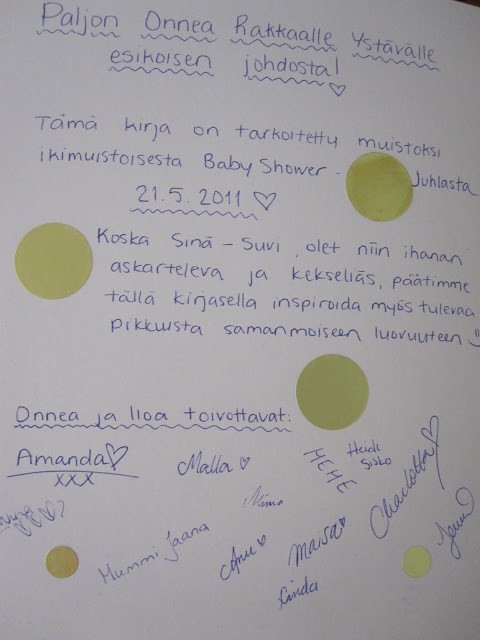 Paljon Onnea Rakkaalle Ystävälle
esikoisen johdosta! ♡
Tämä kirja on tarkoitettu muistoksi
ikimuistoisesta Baby Shower - Juhlasta
21.5.2011 ♡
Koska Sinä - Suvi, olet niin ihanan
askarteleva ja kekseliäs, päätimme
tällä kirjasella inspiroida myös tulevaa
pikkuista samanmoiseen luovuuteen :)
Onnea ja iloa toivottavat:
Amanda♡
XXX
Malla ♡
HEHE
Heidi
Sisko
Charlotta♡
Nimo
Mummi Jaana
Anu ♡
Maisa♡
Linda